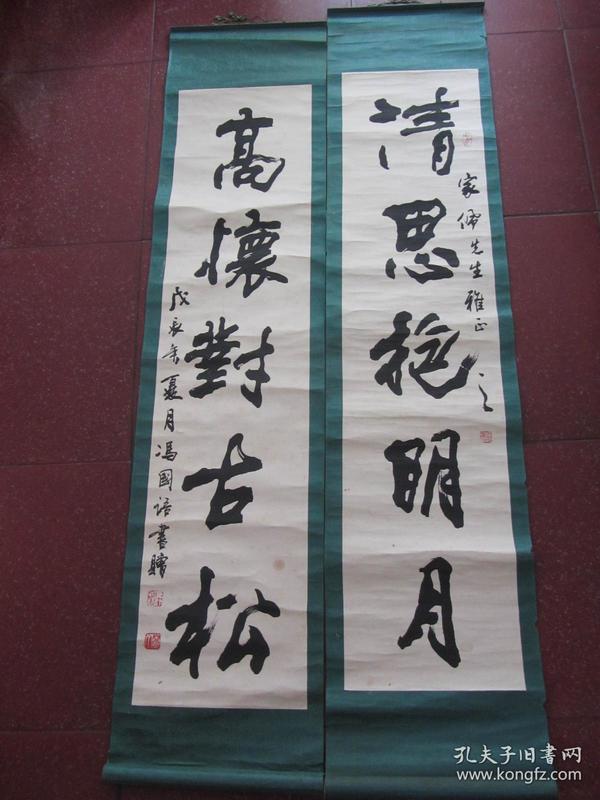 清思抱明月
家佩先生雅正
高懷對古松
戊辰年夏月馮國語書贈
孔夫子旧書网
www.kongfz.com